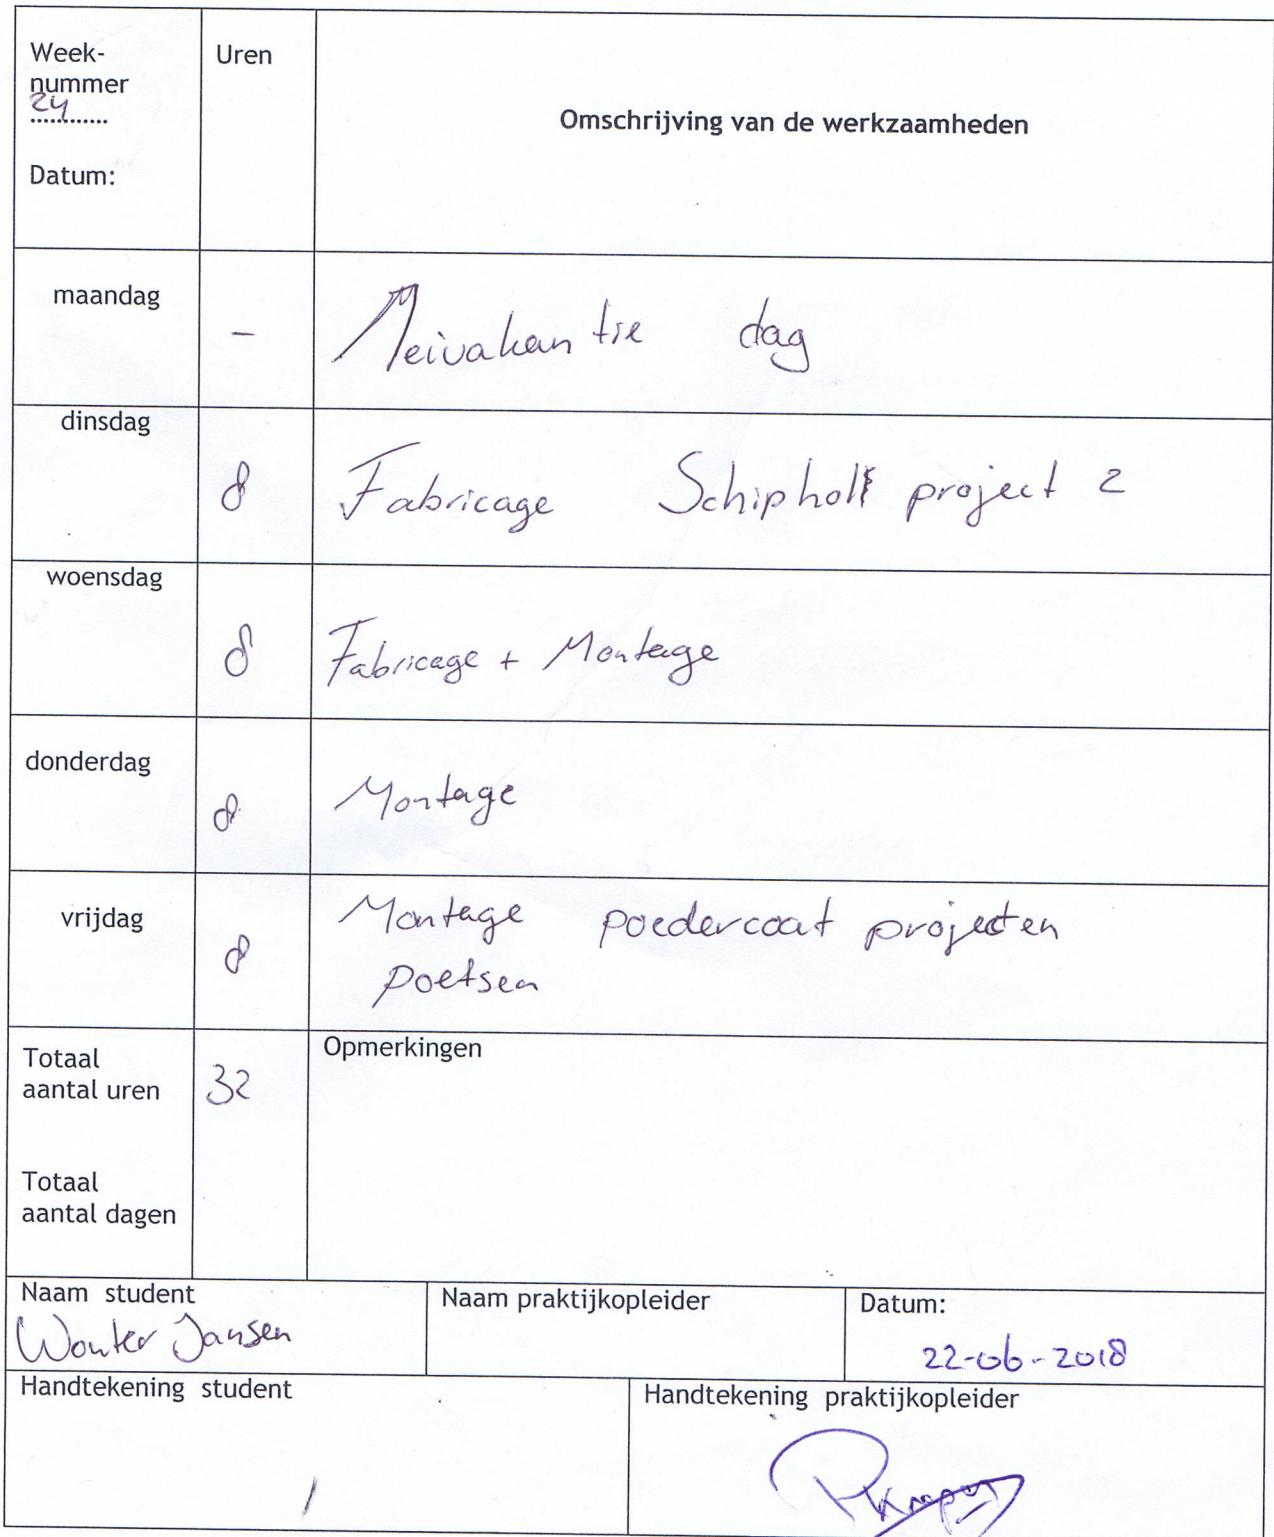 Week-
nummer
24
Datum:
Uren
Omschrijving van de werkzaamheden
maandag
-
Meivakantie dag
dinsdag
8
Fabricage Schiphol project 2
woensdag
8
Fabricage + Montage
donderdag
8
Montage
vrijdag
8
Montage poedercoat projecten
poetsen
Totaal
aantal uren
32
Totaal
aantal dagen
Opmerkingen
Naam student
Wouter Jansen
Naam praktijkopleider
Datum:
22-06-2018
Handtekening student
Handtekening praktijkopleider